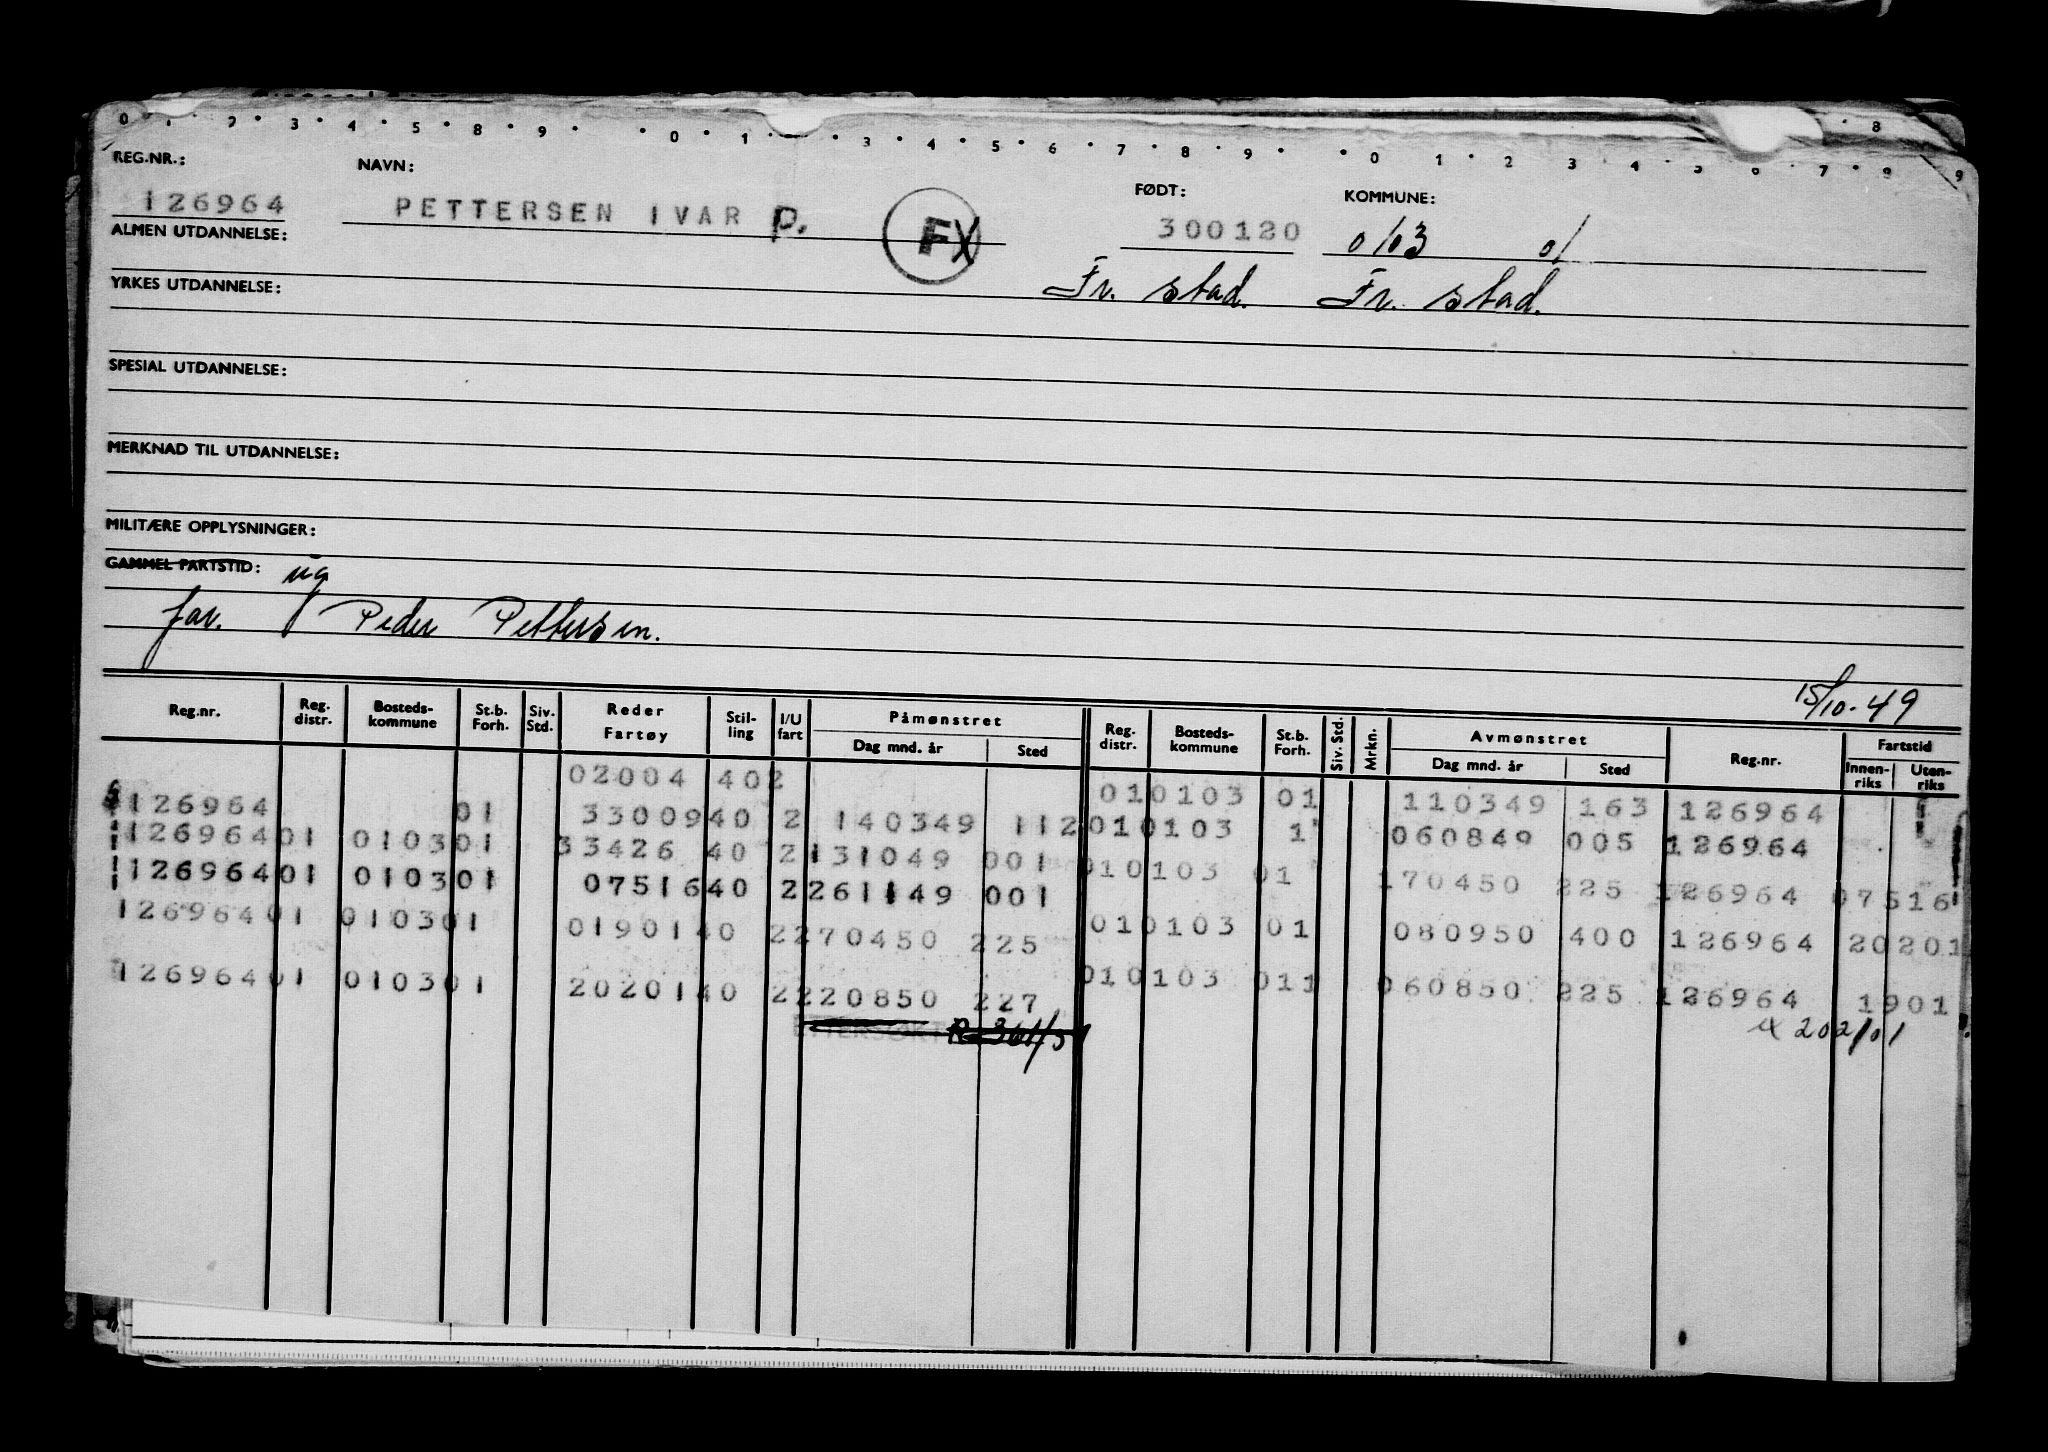 0 1 2 3 4 5 8 9 0 1 3 4 5 6 7 8 9 0 1 2 3 4 5 6 7 8 9
REG.NR.: NAVN: FØDT: KOMMUNE:
126964 PETTERSEN IVAR P. FX 300120 0103 01
ALMEN UTDANNELSE: Fr. stad. Fr. stad.
YRKES UTDANNELSE:
SPESIAL UTDANNELSE:
MERKNAD TIL UTDANNELSE:
MILITÆRE OPPLYSNINGER:
GAMMEL FARTSTID: ug
far. Peder Pettersen.
15/10-49
Reg.nr. Reg. distr. Bosteds-kommune St.b. Forh. Siv. Std. Reder Fartøy Stil-ling I/U fart Påmønstret Dag mnd. år Sted Reg. distr. Bosteds-kommune St.b. Forh. Siv. Std. Mrkn. Avmønstret Dag mnd. år Sted Reg.nr. Fartstid Innen-riks Uten-riks
02004 402 010103 01 110349 163 126964
126964 01 33009 40 2 140349 112 010103 1 060849 005 126964
126964 01 0103 01 33426 40 2 131049 001 010103 01 170450 225 126964 07516
126964 01 0103 01 07516 40 2 261149 001
126964 01 0103 01 01901 40 2 270450 225 010103 01 080950 400 126964 20201
126964 01 0103 01 20201 40 2 220850 227 010103 011 060850 225 126964 1901
ETTERSØKT R 361/51 202/01